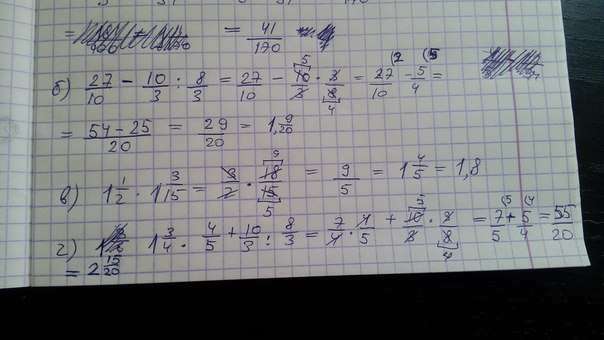 = = 41/170
б) 27/10 - 10/3 : 8/3 = 27/10 - 10/3 · 3/8 = 27/10 - 5/4 =
= 54-25/20 = 29/20 = 1,9/20
в) 1 1/2 · 1 3/15 = 3/2 · 18/15 = 9/5 = 1 4/5 = 1,8
г) 1 3/4 · 4/5 + 10/3 : 8/3 = 7/4 · 4/5 + 10/3 · 3/8 = 7/5 + 5/4 = 55/20
= 2 15/20